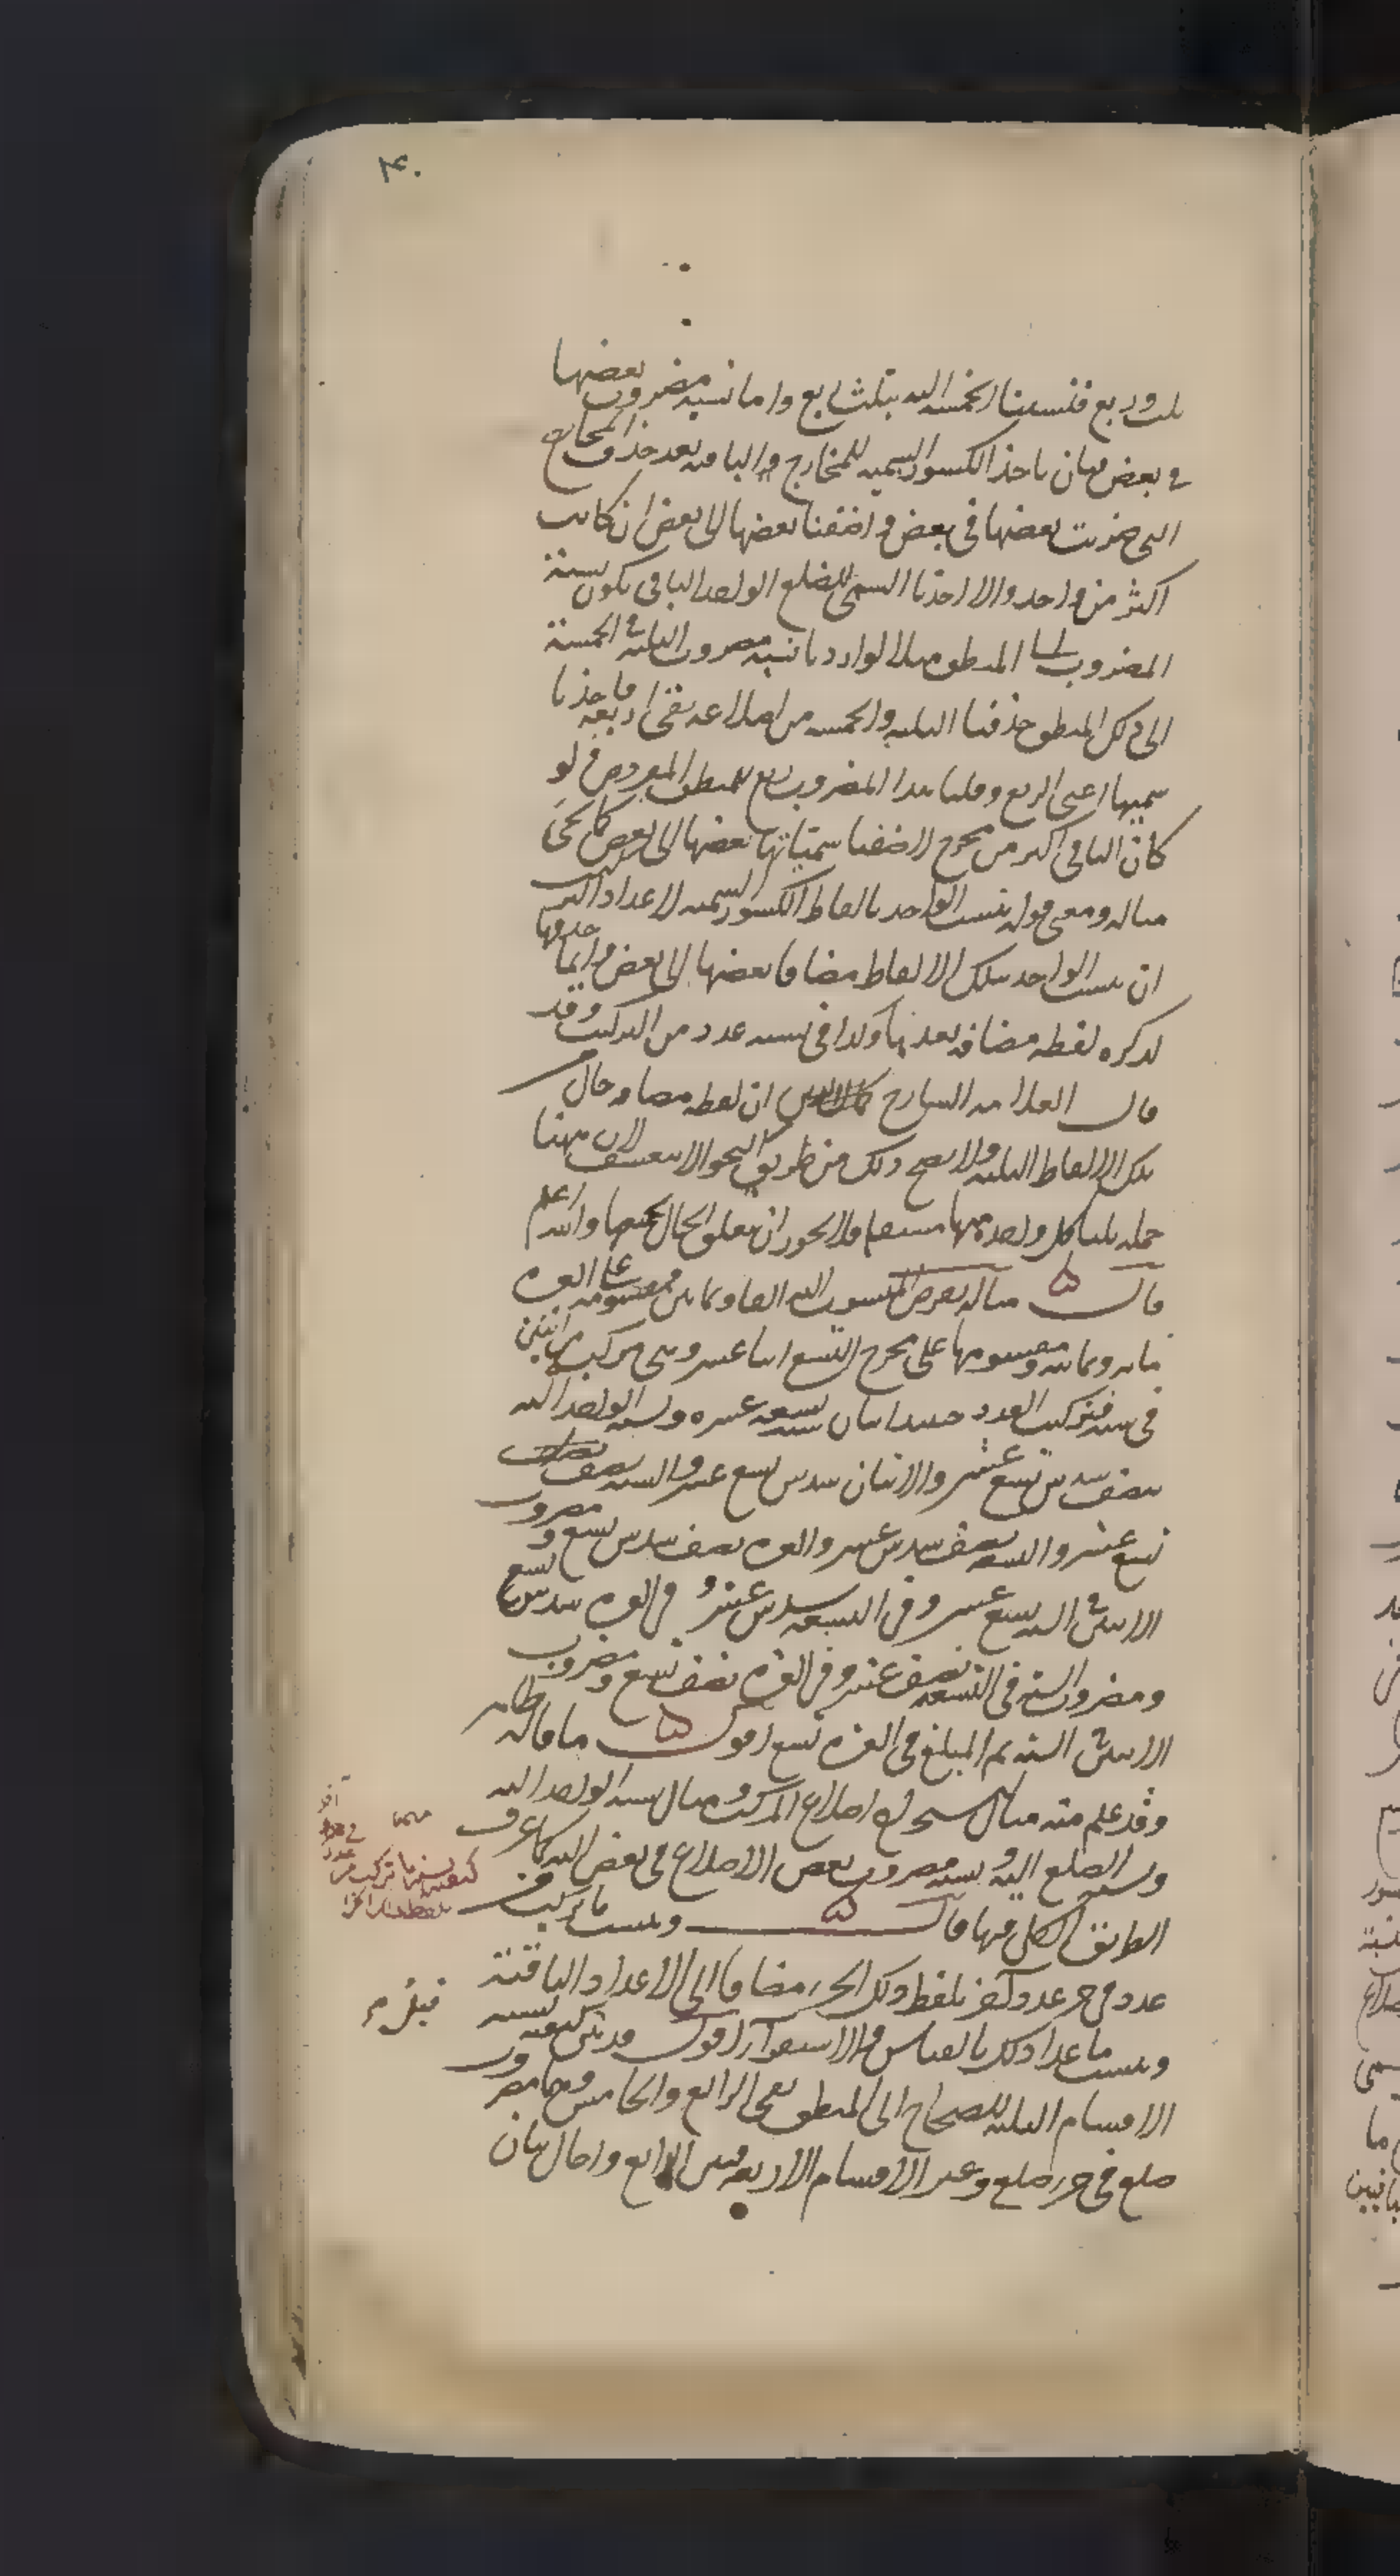 ۴۰
ثلث وربع فنسبنا الخمسة اليه بثلث ربع واما نسبة مضروب بعضها
في بعض فبان ناخذ الكسور السمية للمخارج الباقية بعد حذف المخارج
التي ضربت بعضها في بعض واضفنا بعضها الى بعض ان كانت
اكثر من واحد والا اخذنا السمي للضلع الواحد الباقي يكون نسبة
المضروب الى المنطق مثلا لو اردنا نسبة مضروب الثلثة في الخمسة
الى ذلك المنطق حذفنا الثلثة والخمسة من اضلاعه بقي اربعة فاخذنا
سميها اعني الربع وقلنا هذا المضروب ربع للمنطق المفروض ولو
كان الباقي اكثر من مخرج لاضفنا سمياتها بعضها الى بعض كما يجئ
مثاله ومعنى قوله ينسب الواحد بالفاظ الكسور السمية لاعداد التركيب
ان ينسب الواحد بتلك الالفاظ مضافا بعضها الى بعض وانما حذفها
لذكره لفظه مضافة بعدها وكذا في نسبة عدد من التركيب وقد
قال العلامة الشارح ان لفظه مضافة حال من
تلك الالفاظ الثلثة ولا يصح ذلك من طريق النحو الا بتعسف لان ههنا
جملة ثلثا كل واحدة منها مستقلة فلا يجوز ان يتعلق الحال بجميعها والله اعلم
قال مثاله يفرض المنسوب اليه الفا وثمانين مقسومه على العشرة
مائة وثمانية ومقسومها على مخرج التسع اثنا عشر وهي مركب من اثنين
في ستة فتركيب العدد حينئذ اثنان ستة تسعة عشرة ونسبة الواحد اليه
نصف سدس تسع عشر والاثنان سدس تسع عشر والستة نصف
تسع عشر والتسعة نصف سدس عشر والعشرة نصف سدس تسع ومضروب
الاثنين في الستة تسع عشر وفي التسعة سدس عشر وفي العشرة سدس تسع
ومضروب الستة في التسعة نصف عشر وفي العشرة نصف تسع ومضروب
الاثنين في الستة ثم المبلغ في العشرة تسع اقول ما قاله ظاهر
وقد علم منه مثال استخراج اضلاع المركب ومثال نسبة الواحد اليه
ونسبة الضلع اليه ونسبة مضروب بعض الاضلاع في بعض اليه كما عرف
الطريق الكلي فيها قال وينسب ما تركب من
عدد في جزء عدد آخر بلفظ ذلك الجزء مضافا الى الاعداد الباقية
وينسب ما عدا ذلك بالقياس والاستقراء اقول قد بين كيفية نسبة
الاقسام الثلثة للصحاح الى المنطق بقي الرابع والخامس وهما مضروب
ضلع في جزء ضلع وغير الاقسام الاربعة فبين الرابع واحال بيان